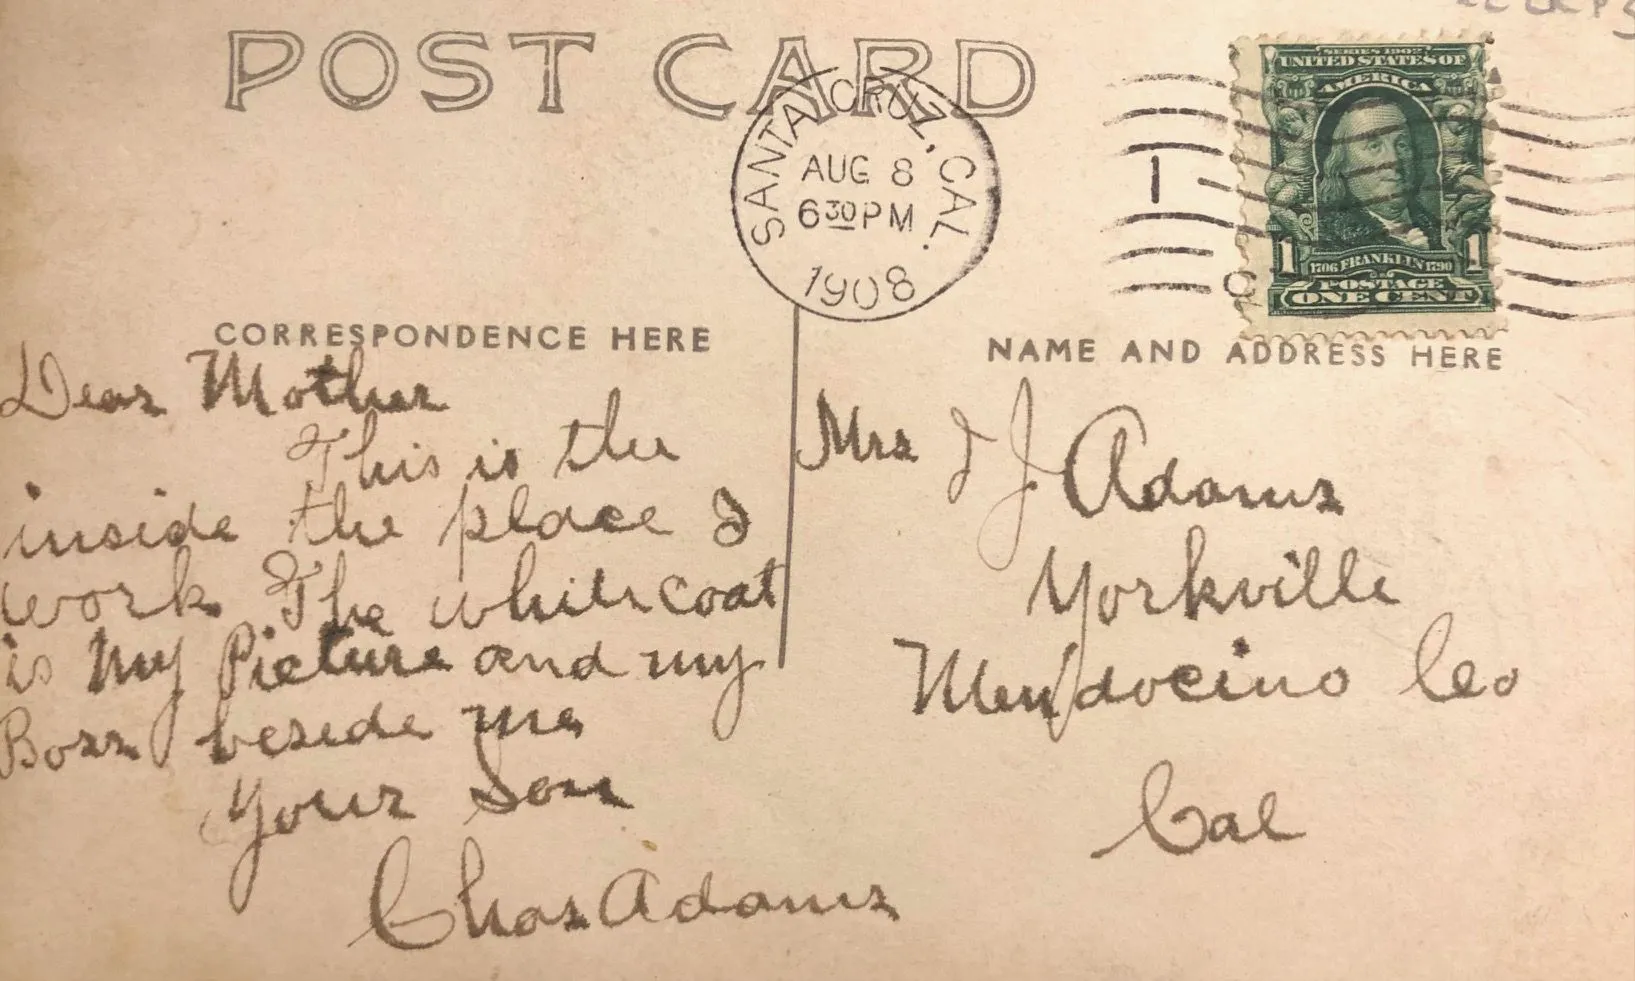 POST CARD
SANTA CRUZ, CAL.
AUG 8
6 30 PM
1908
1
SERIES 1902
UNITED STATES OF
AMERICA
1 1706 FRANKLIN 1790 1
POSTAGE
ONE CENT
CORRESPONDENCE HERE
Dear Mother
This is the
inside the place I
work The white coat
is My Picture and my
Boss beside me
Your Son
Chas Adams
NAME AND ADDRESS HERE
Mrs J Adams
Yorkville
Mendocino Co
Cal